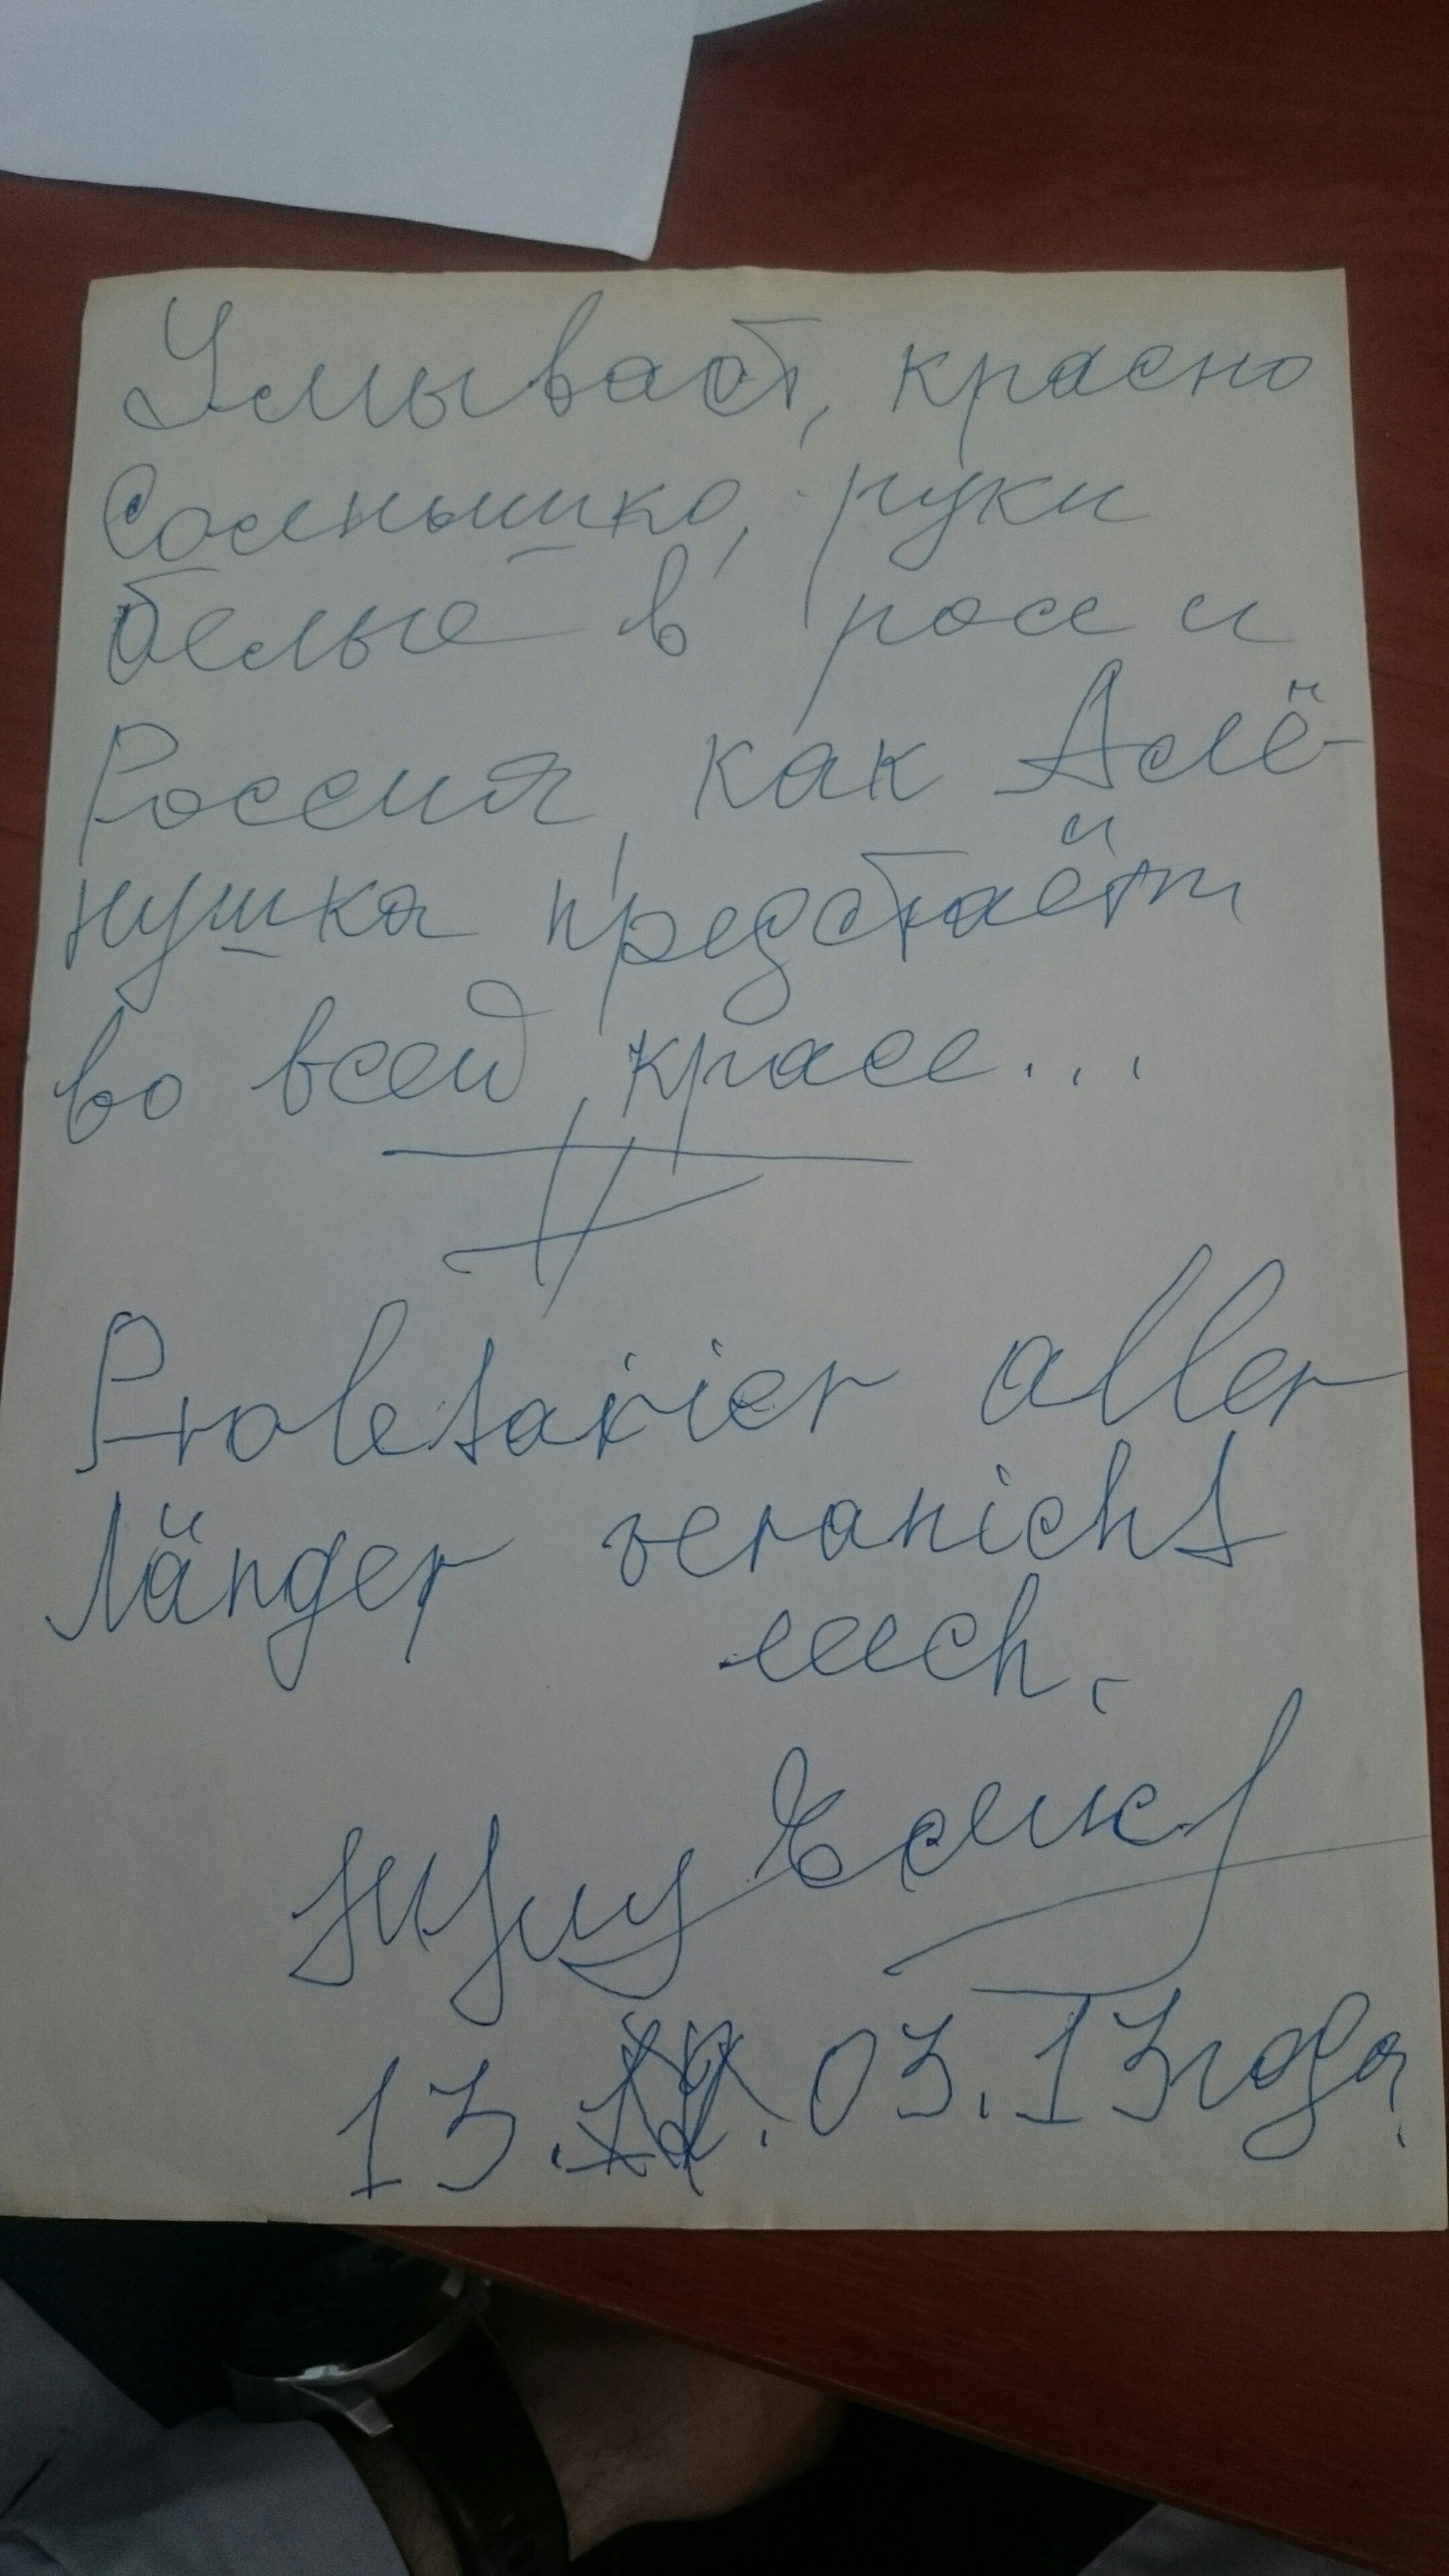 Умывает, красно
Солнышко, руки
белые в росе и
Россия, как Алё-
нушка предстаёт
во всей красе...
Proletarier aller
Länger veranicht
euch.
13. 03.13 года.